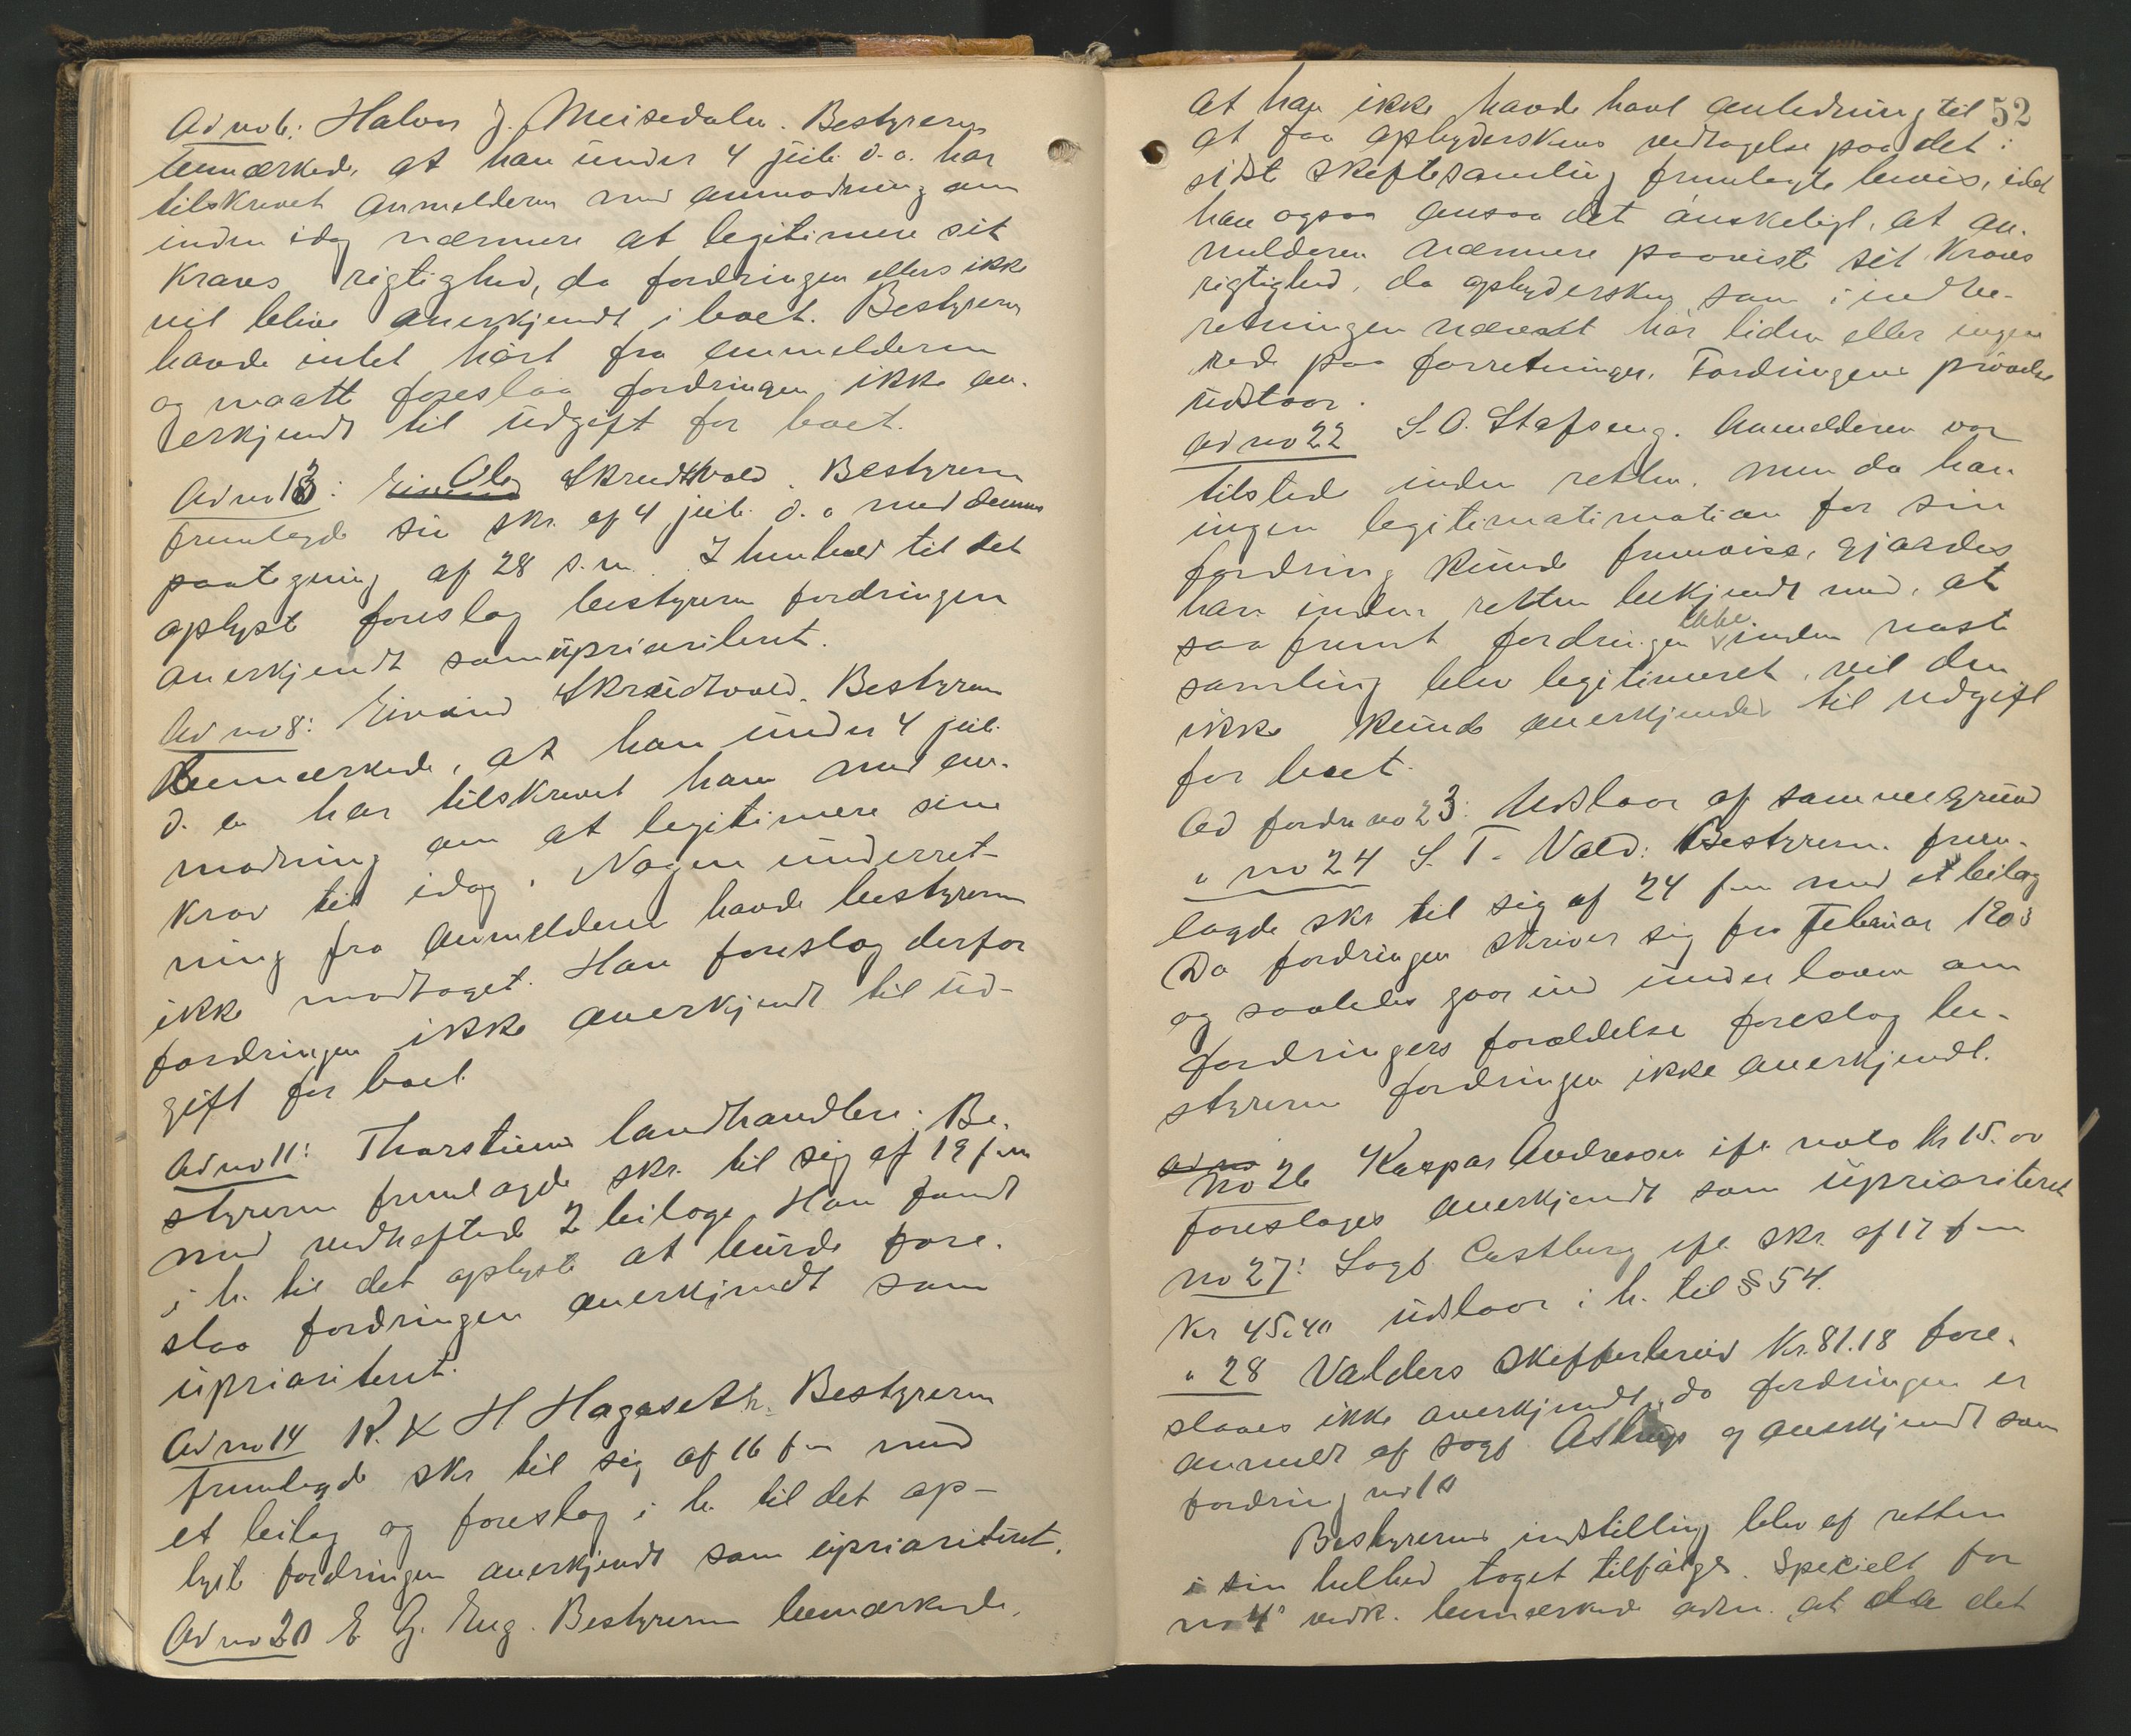 Ad no 6: Halvor J. Meisedalen. Bestyreren
bemærkede, at han under 4 juli d.a. har
tilskrevet anmelderen med anmodning om
inden idag nærmere at legitimere sit
kravs rigtighed, da fordringen ellers ikke
vil blive anerkjendt i boet. Bestyreren
havde intet hørt fra anmelderen
og maatte foreslaa fordringen ikke an-
erkjendt til udgift for boet.
Ad no 13: Eivind Ole Skrudtvold. Bestyreren
fremlagde sin skr. af 4 juli d.a med dennes
paategning af 28 s.m. I henhold til det
oplyste foreslog bestyreren fordringen
anerkjendt som uprioriteret.
Ad no 8: Eivind Skrudtvold. Bestyreren
bemærkede, at han under 4 juli
d. a har tilskrevet ham med an-
modning om at legitimere sine
krav til idag. Nogen underret-
ning fra anmelderen havde bestyreren
ikke modtaget. Han foreslog derfor
fordringen ikke anerkjendt til ud-
gift for boet.
Ad no 11: Thorstiens landhandleri. Be-
styreren fremlagde skr. til sig af 19 f m
med vedheftede 2 bilage. Han fandt
i h. til det oplyste at burde fore-
slaa fordringen anerkjendt som
uprioriteret.
Ad no 14 K. & H Hagaseth. Bestyreren
fremlagde skr til sig af 16 f m med
et bilag og foreslog i h. til det op-
lyste fordringen anerkjendt som uprioriteret.
Ad no 20 E. G. Eng. Bestyreren bemærkede,
52
at han ikke havde havt anledning til
at faa opbyderskens vedtagelse paa det i
sidste skiftesamling fremlagte bevis, idet
han ogsaa ansaa det ønskeligt, at an-
melderen nærmere paaviste sit kravs
rigtighed, da opbydersken som i indbe-
retningen nævnt har liden eller ingen
rede paa forretninger. Fordringens prøvelse
udstaar.
Ad no 22 S. O. Stafseng. Anmelderen var
tilstede inden retten. Men da han
ingen legitimatimation for sin
fordring kunde fremvise, gjordes
han inden retten bekjendt med, at
saafremt fordringen ikke inden næste
samling blev legitimeret, vil den
ikke kunde anerkjendes til udgift
for boet.
Ad fordr no 23: Udstaar af samme grund
" no 24 S. T. Vold: Bestyreren frem-
lagde skr til sig af 24 f m med et bilag
Da fordringen skriver sig fra februar 1903
og saaledes gaar ind under loven om
fordringers forældelse foreslog be-
styreren fordringen ikke anerkjendt.
ad no
No 26 Kaspar Andreasen ifl. nota kr 15.00
foreslages anerkjendt som uprioriteret
No 27: Sagf. Castberg ifl. skr. af 17 f m
Kr 45.40 udstaar i h. til § 54.
" 28 Valders skifferbrud Kr. 81.18 fore-
slaaes ikke anerkjendt, da fordringen er
anmeldt af sagf. Astrup og anerkjendt som
fordring no 10
Bestyrerens indstilling blev af retten
i sin helhed taget tilfølge. Specielt for
no 4 vedk. bemærkede adm. at da det